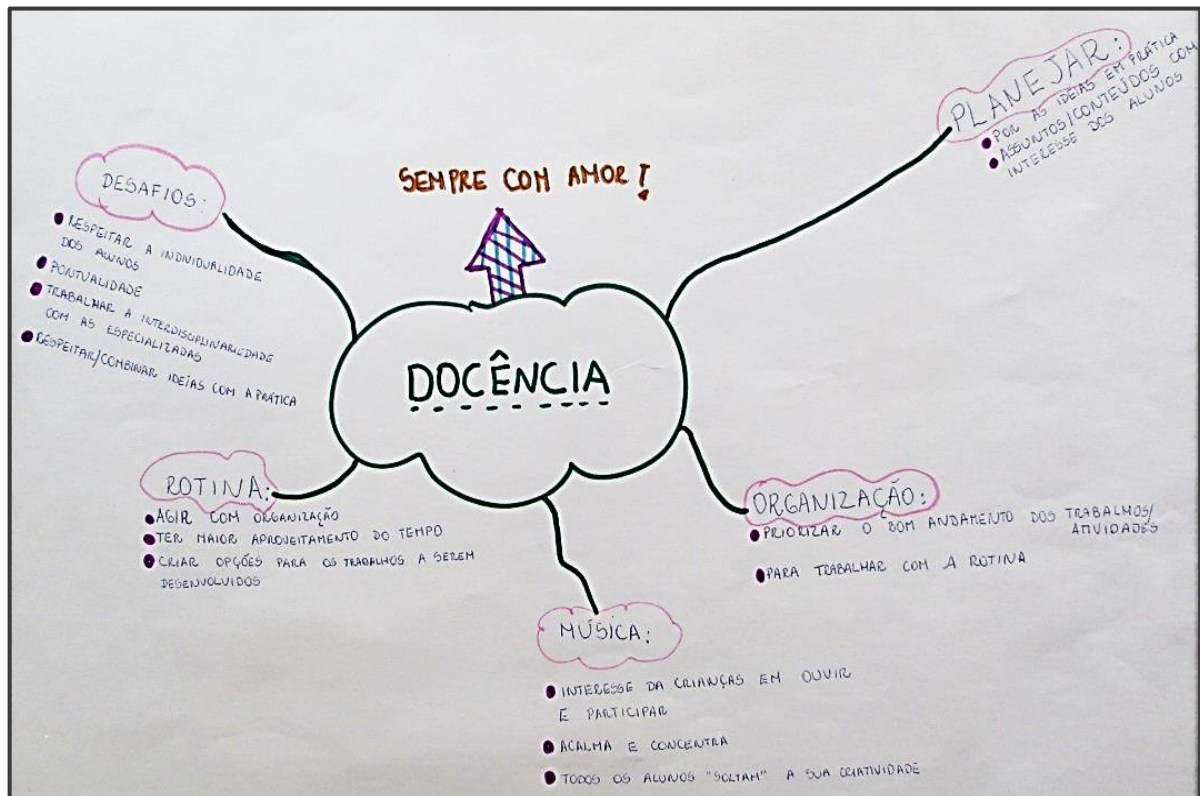 SEMPRE COM AMOR!
DOCÊNCIA
DESAFIOS:
RESPEITAR A INDIVIDUALIDADE
DOS ALUNOS
PONTUALIDADE
TRABALHAR A INTERDISCIPLINARIEDADE
COM AS ESPECIALIZADAS
RESPEITAR/COMBINAR IDEIAS COM A PRÁTICA
PLANEJAR:
POR AS IDEIAS EM PRÁTICA
ASSUNTOS/CONTEÚDOS COM
INTERESSE DOS ALUNOS
ROTINA:
AGIR COM ORGANIZAÇÃO
TER MAIOR APROVEITAMENTO DO TEMPO
CRIAR OPÇÕES PARA OS TRABALHOS A SEREM
DESENVOLVIDOS
ORGANIZAÇÃO:
PRIORIZAR O BOM ANDAMENTO DOS TRABALHOS/
ATIVIDADES
PARA TRABALHAR COM A ROTINA
MÚSICA:
INTERESSE DA CRIANÇAS EM OUVIR
E PARTICIPAR
ACALMA E CONCENTRA
TODOS OS ALUNOS "SOLTAM" A SUA CRIATIVIDADE